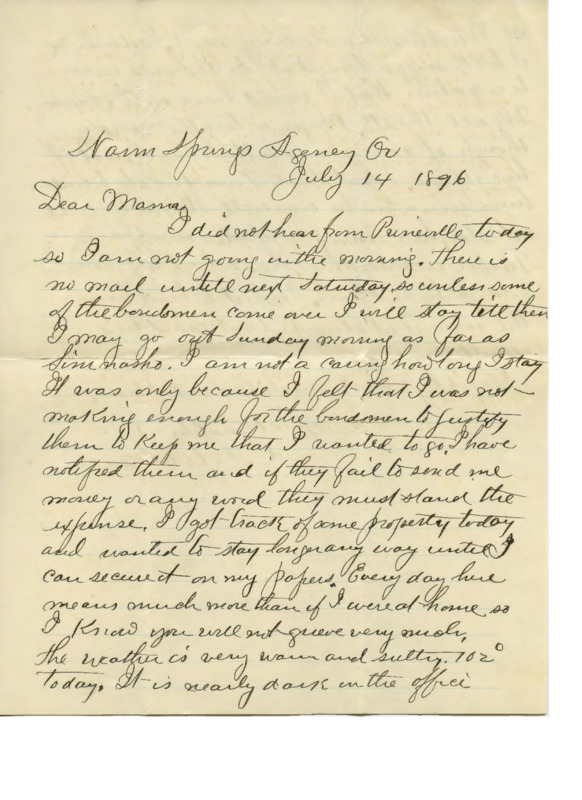 Warm Springs Agency Or
July 14 1896
Dear Mama,
I did not hear from Prineville today
so I am not going in the morning. There is
no mail untill next Saturday, so unless some
of the bondsmen come over I will stay till then
I may go out Sunday morning as far as
Simnasho. I am not a caring how long I stay
It was only because I felt that I was not
making enough for the bondsmen to justify
them to keep me that I wanted to go. I have
notifred them and if they fail to send me
money or any word they must stand the
expense. I got track of some property today
and wanted to stay longer any way until I
can secure it on my papers. Every day here
means much more than if I were at home so
I know you will not grieve very much.
The weather is very warm and sultry. 102°
today. It is nearly dark in the office